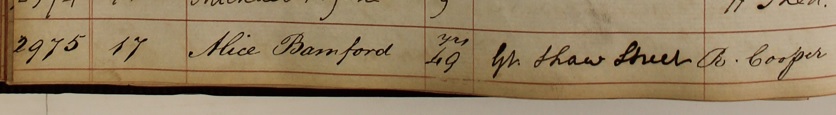 2975 17 Alice Bamford 49 yrs Gt. Shaw Street R. Cooper